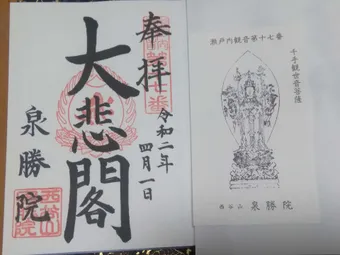 奉拝
令和二年
四月一日
大悲閣
泉勝院
瀬戸内観音第十七番
千手観世音菩薩
泉勝院